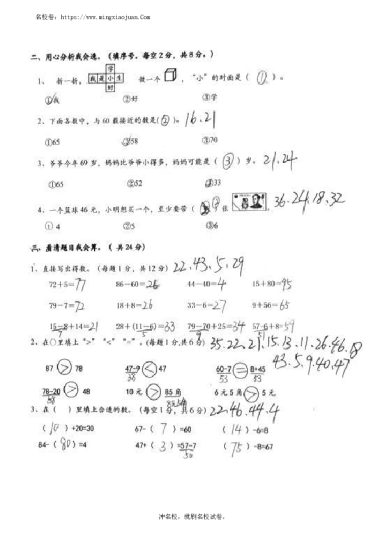 名校卷：https://www.mingxiaojuan.Com
二、用心分析我会选。（填序号。每空2分，共8分。）
学
1、 折一折。 我是小生 做一个 ，“小”的对面是（ ① ）。
时
①我 ②好 ③学
2、下面各数中，与60最接近的数是(②)。 16.21
①65 ②58 ③70
3、爷爷今年69岁，妈妈比爷爷小得多，妈妈可能是（ ③ ）岁。 21.24
①65 ②52 ③33
4、一个篮球46元，小明想买一个，至少要带（ ）张 36.24.18.32
① 4 ②5 ③6
三、看清题目我会算。（ 共24分）
1、直接写出得数。（每题1分，共12分） 22.43.5.29
72+5=77 86-60=26 44-40=4 15+80=95
79-7=72 18+8=26 33-6=27 9+56=65
15-8+14=21 28+（11-6）=33 79-70+25=34 57-6+8=59
2、在○里填上“>”“<”“=”。(每题1分,共6分) 35.22.21.15.13.11.26.46.8
43.5.9.40.47
87 > 78 47-9 < 47 60-7 = 8+45
78-20 > 48 10元 > 85角 6元5角 > 5元
3、在（ ）里填上合适的数。（每空1分，共6分） 22.46.44.4
（ 10 ）+20=30 67-（ 7 ）=60 （ 14 ）-6=8
84-（ 80 ）=4 47+（ 3 ）=57-7 （ 75 ）-8=67
冲名校，就刷名校试卷。